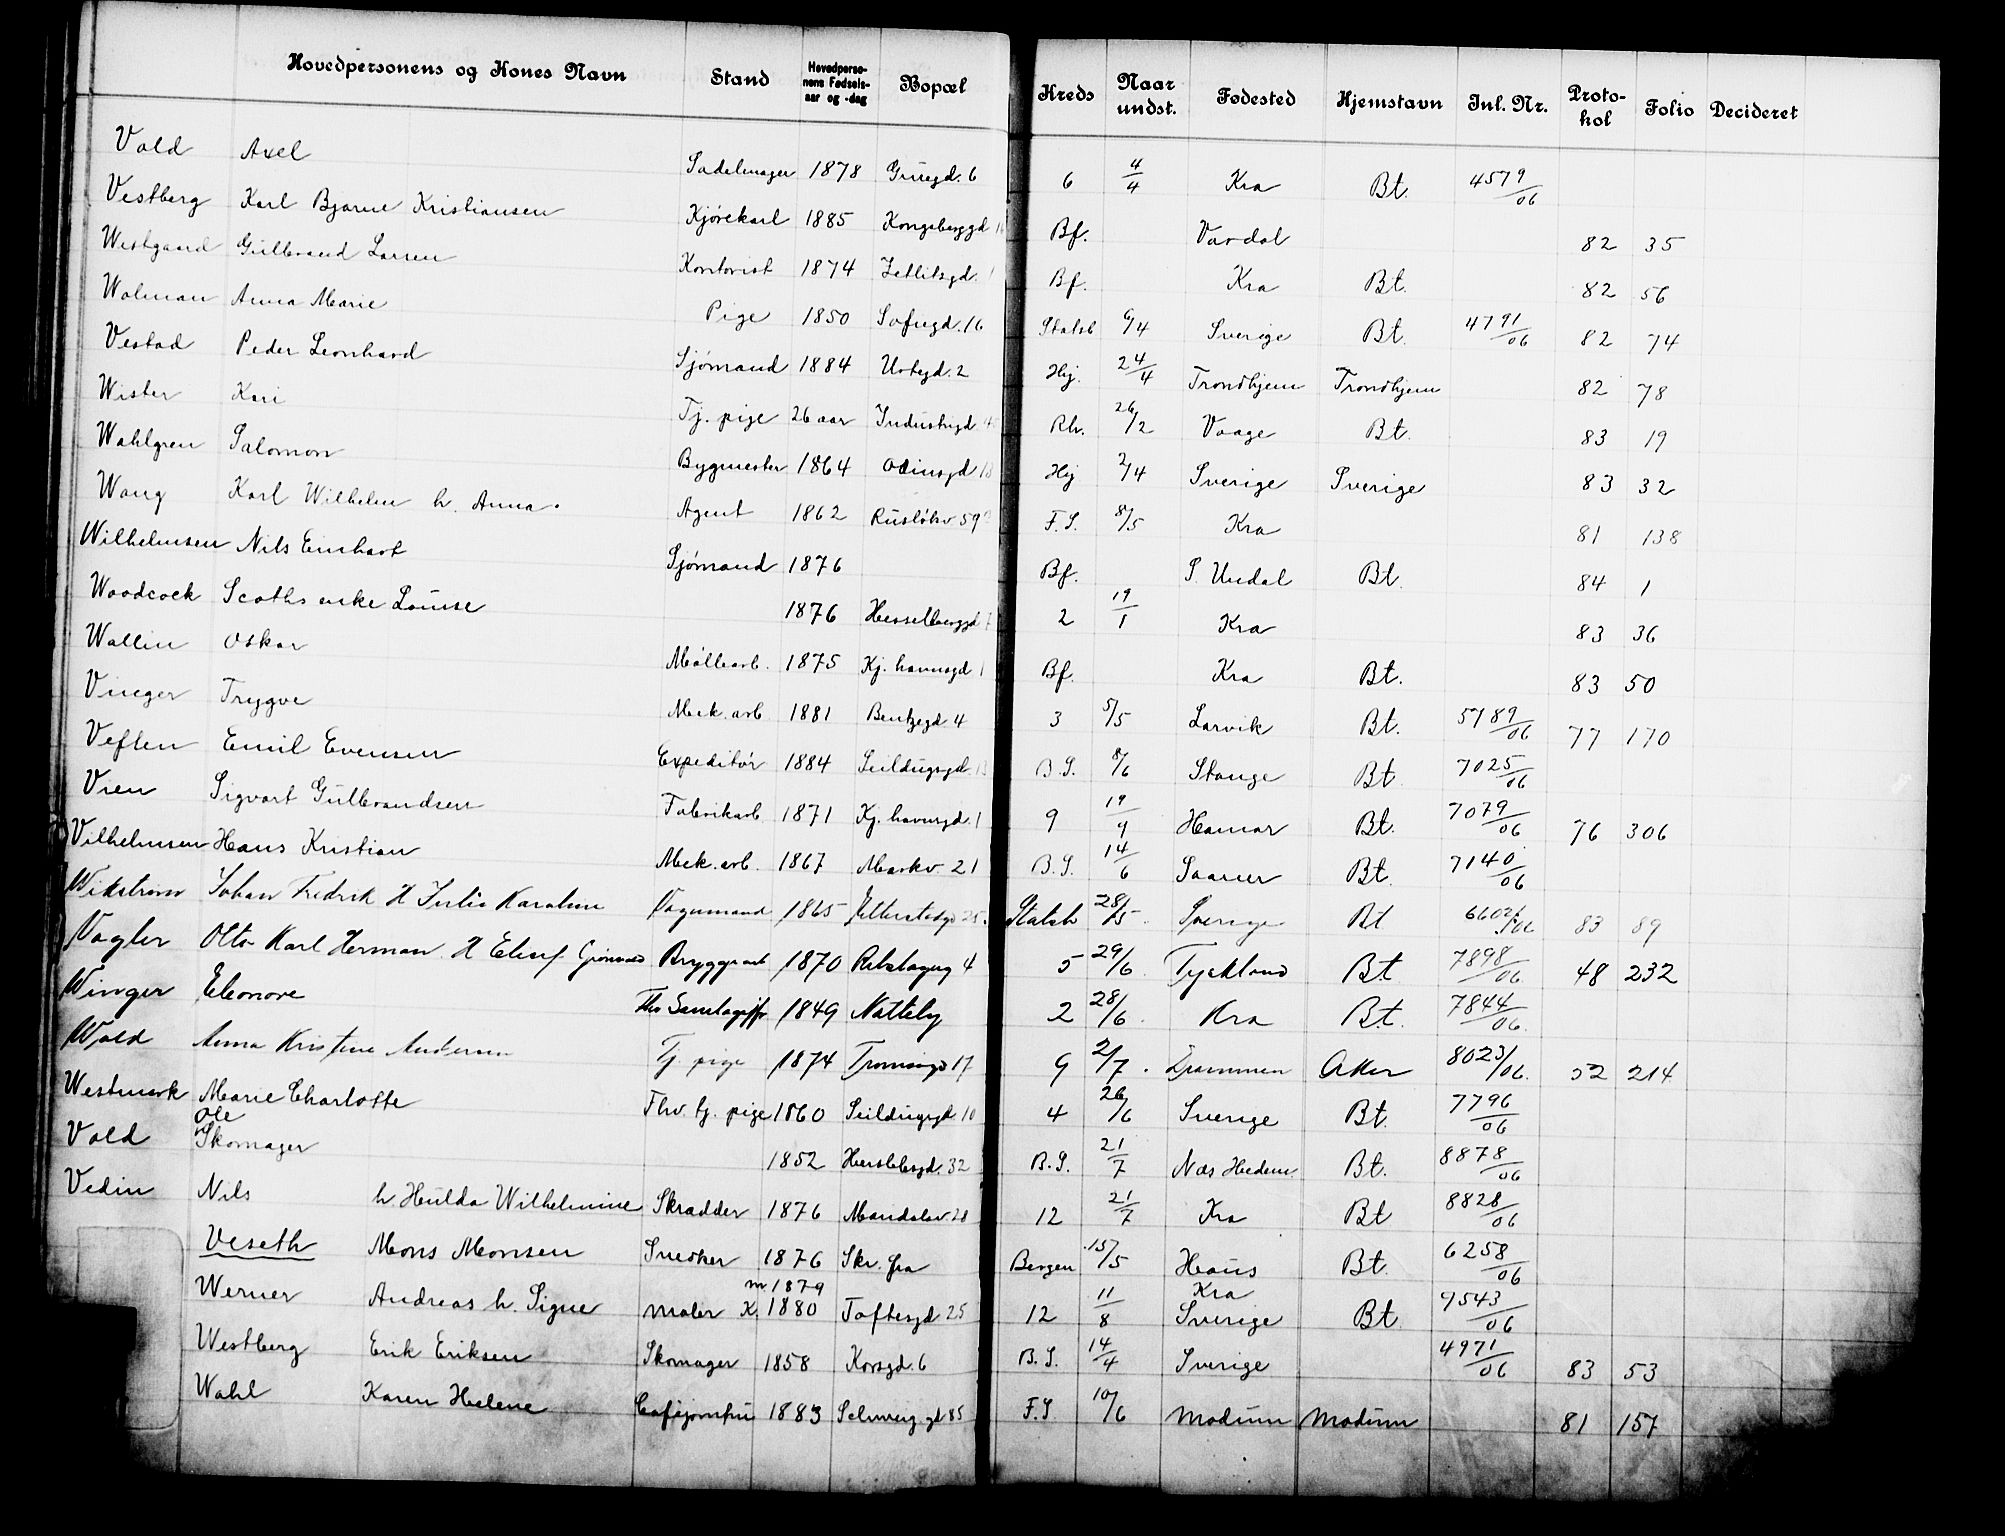 Hovedpersonens og Kones Navn Stand Hovedpersonens Fødselsaar og -dag Bopæl Kreds Naar undst. Fødested Hjemstavn Inl. Nr. Protokol Folio Decideret
Vold Axel Sadelmager 1878 Grüegd. 6 6 4/4 Kra Bt. 4579/06
Vestberg Karl Bjarne Kristiansen Kjørekarl 1885 Kongsberggd Bf. Vardal 82 35
Westgaard Gulbrand Larsen Kontorist 1874 Zetlitzgd. Bf. Kra Bt. 82 56
Wolman Anna Marie Pige 1850 Sofiegd. 16 Statsb 6/4 Sverige Bt. 4791/06 82 74
Vestad Peder Leonhard Sjømand 1884 Urtegd. 2 Hj. 24/4 Trondhjem Trondhjem 82 78
Wister Kari Tj. pige 26 aar Industrigd Rh. 26/2 Vaage Bt. 83 19
Wahlgren Salomon Bygmester 1864 Odinsgd Hj 2/4 Sverige Sverige 83 32
Wang Karl Wilhelm h. Anna. Agent 1862 Rusløkv 59 F.S. 8/5 Kra 81 138
Wilhelmsen Nils Einhart Sjømand 1876 Bf. S. Undal Bt. 84 1
Woodcock Scoths enke Louise 1876 Hesselberggd 2 19/1 Kra 83 36
Wallin Oskar Møllearb. 1875 Kj. havnsgd Bf. Kra Bt. 83 50
Vinger Trygve Mek. arb 1881 Bentzegd 4 3 5/5 Larvik Bt. 5789/06 77 170
Veften Emil Evensen Expeditør 1884 Seildugsgd. B.S. 8/6 Stange Bt. 7025/06
Vien Sigvart Gulbrandsen Fabrikarb 1871 Kj. havnsgd. 9 19/4 Hamar Bt. 7079/06 76 306
Vilhelmsen Hans Kristian Mek. arb. 1867 Markv. 21 B.S. 14/6 Saaner Bt. 7140/06
Wikstrøm Johan Fredrik H Julie Karoline Vognmand 1865 Statsb 28/5 Sverige Bt 6602/06 83 89
Vogler Otto Karl Herman. H Elisif Bryggearb 1870 4 5 29/6 Tyskland Bt 7898/06 48 232
Winger Eleonore 1849 Natteby 2 28/6 Kra Bt. 7844/06.
Wold Anna Kristine Andersen Tj. pige 1874 Tromsøgd 17 9 2/7 Drammen Aker 8023/06. 52 214
Westmark Marie Charlotte Fhv. tj. pige 1860 Seildugsgd 10 4 26/6 Sverige Bt. 7796/06
Vold Ole Skomager 1852 Herslebsgd. 32 B.S. 21/7 Næs Hedem. Bt. 8878/06
Vedin Nils h. Hulda Wilhelmine Skrædder 1876 Mandalsv. 28 12 21/7 Kra Bt 8828/06
Veseth Mons Monsen Snedker 1876 Skr. fra Bergen 15/5 Haus Bt. 6258/06
Werner Andreas h. Signe Maler m. 1879 K. 1880 Toftesgd 25 12 11/8 Kra Sverige Bt. 9543/06
Westberg Erik Eriksen Skomager 1858 Korsgd. 6 B.S. 14/4 Sverige 4971/06 83 53
Wahl Karen Helene Cafejomfru 1883 Schweig. gd 85 F.S 10/6 Modum Modum 81 157